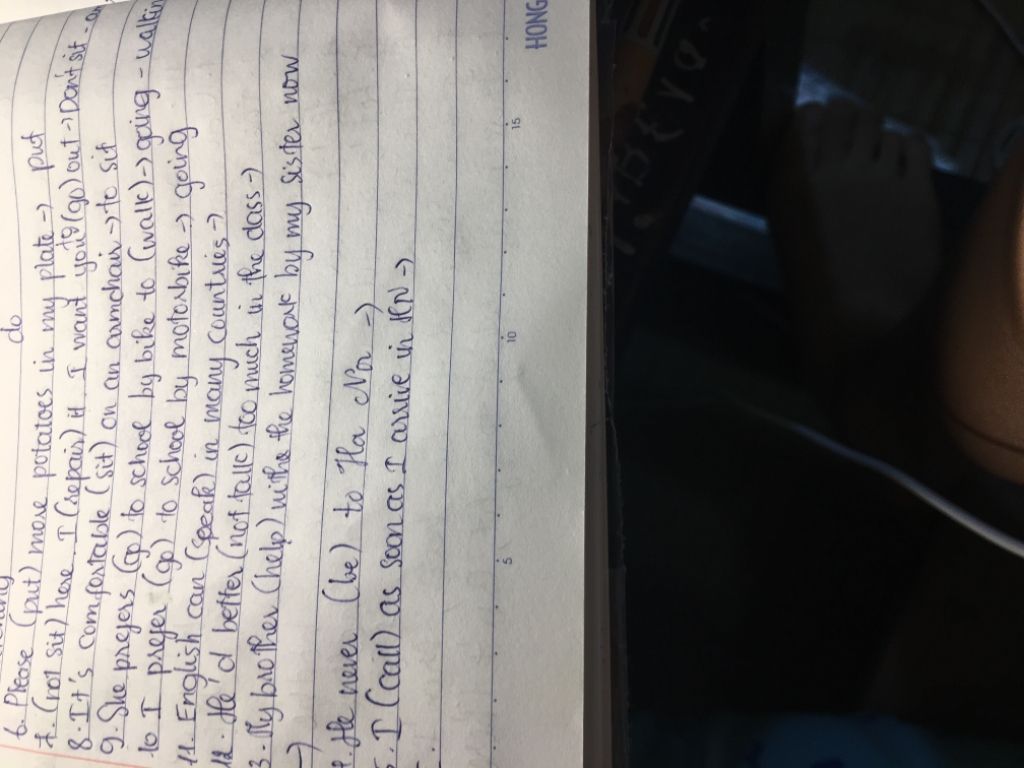 do
6. Please (put) more potatoes in my plate → put
7. (not sit) here. I (repair) it. I want you to (go) out → Don't sit -
8. It's comfortable (sit) on an armchair → to sit
9. She prefers (go) to school by bike to (walk) → going - walking
10 I prefer (go) to school by motorbike → going
11. English can (speak) in many countries →
12. He'd better (not talk) too much in the class →
3. My brother (help) withe the homework by my sister now
→
He never (be) to Ha Noi →
I (call) as soon as I arrive in HN →
5
10
15
HONG